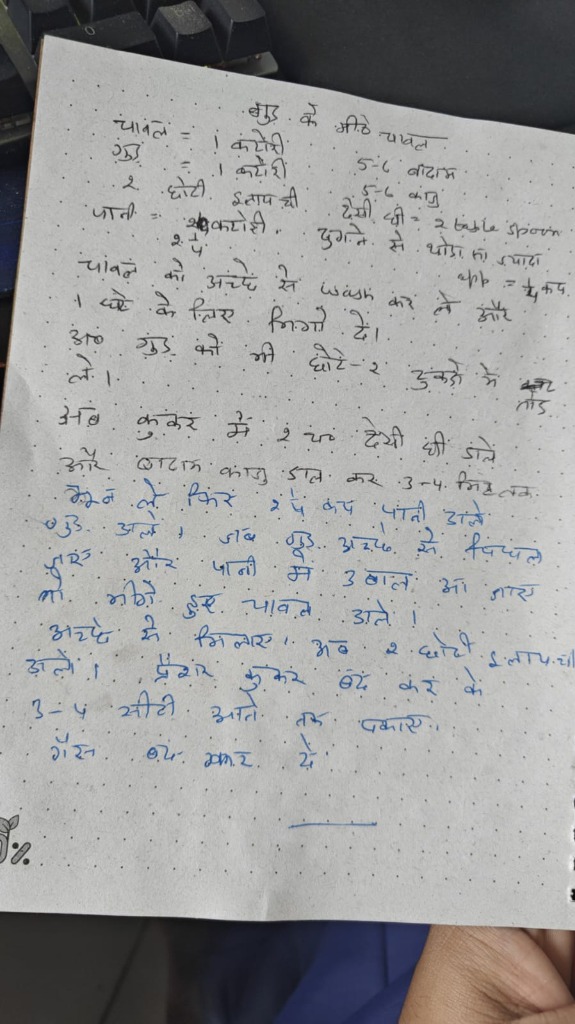 गुड़ के मीठे चावल
चावल = 1 कटोरी
गुड़ = 1 कटोरी 5-6 बादाम
2 छोटी इलायची 5-6 काजू
पानी = कटोरी. देसी घी = 2 table spoon
2 1/4 दुगने से थोडा सा ज्यादा
app = 1/4 कप
चावल को अच्छे से wash कर ले और
1 घंटे के लिए भिगो दे।
अब गुड़ को भी छोटे-2 टुकडो मे तोड
ले।
अब कुकर मे 2 चम देसी घी डाले
और बादाम काजू डाल कर 3-4 मिनट तक
भून ले फिर 2 1/4 कप पानी डाले
गुड़ डाले। जब गुड़ अच्छे से पिघल
जाए और पानी मे उबाल आ जाए
तो भीगे हुए चावल डाले।
अच्छे से मिलाए। अब 2 छोटी इलायची
डाले। प्रैशर कुकर बंद कर के
3-4 सीटी आने तक पकाए।
गैस बंद कर दे